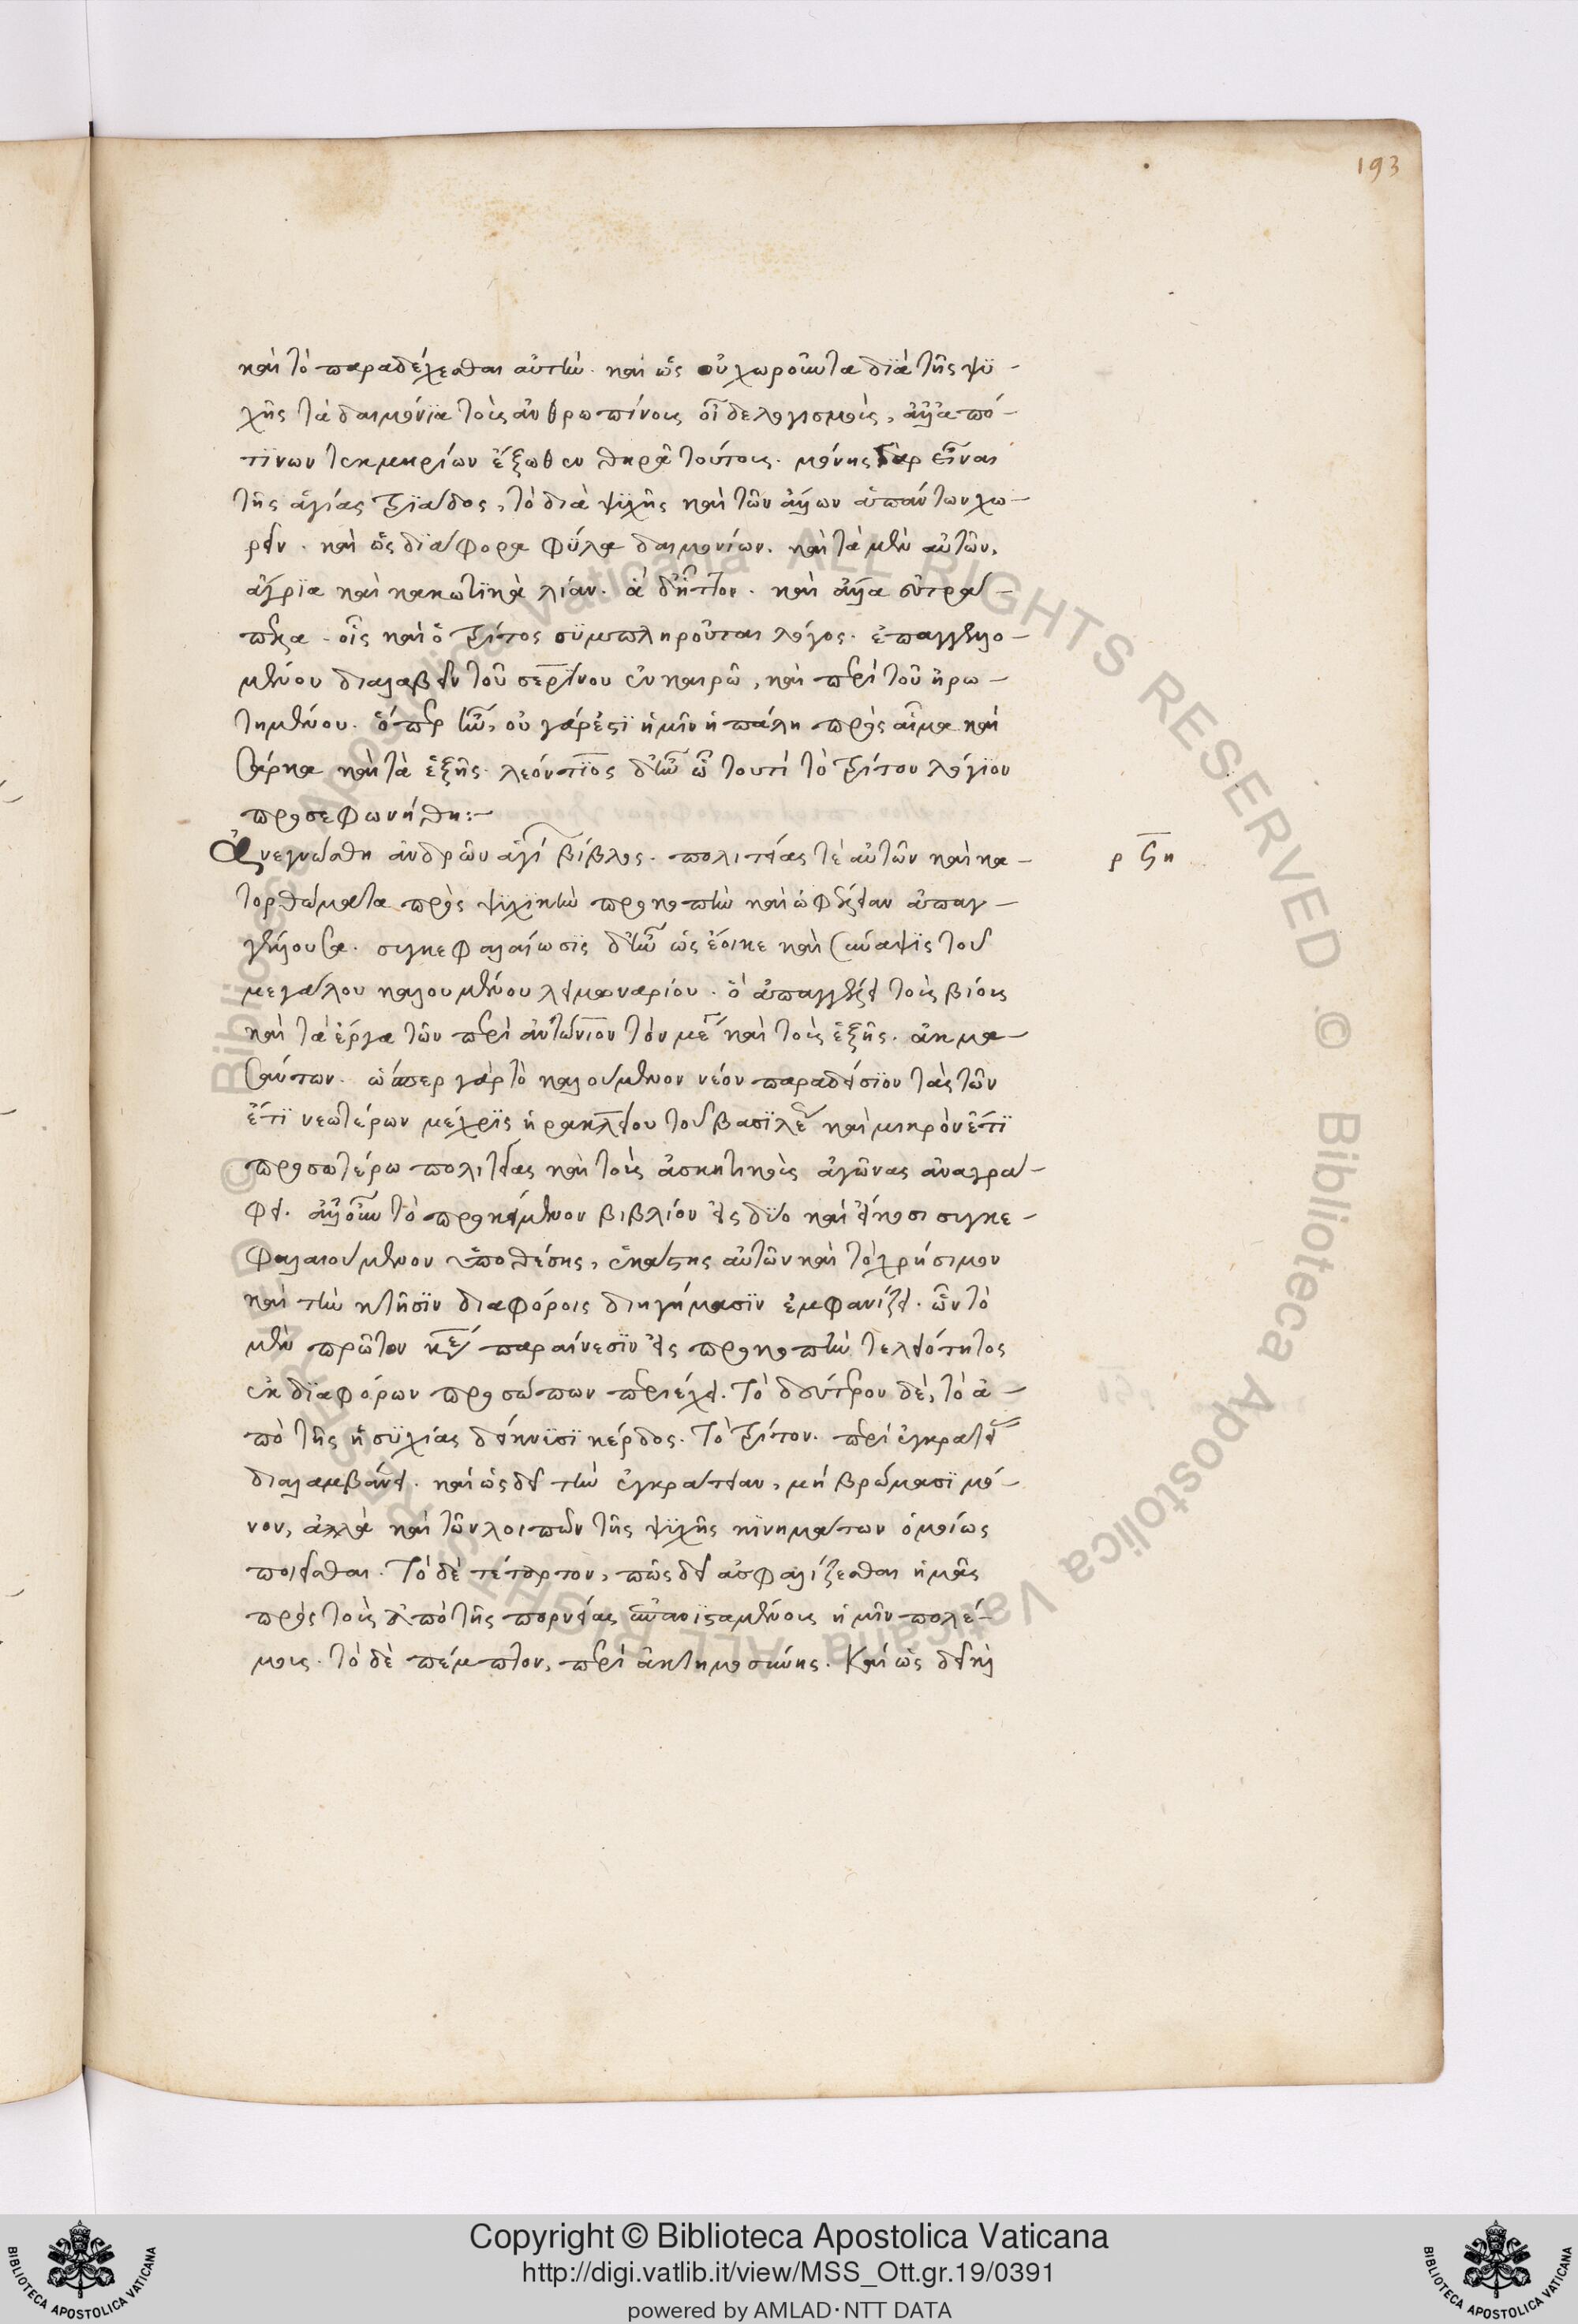 193
καὶ τὸ παραδέχεσθαι αὐτήν. καὶ ὡς οὐ χωροῦντα διὰ τῆς ψϋ-
χῆς τὰ δαιμόνϊα τοῖς ἀνθρωπίνοις οἶδε λογισμοῖς, ἀλλ' ἀπό
τϊνων τεκμηρίων ἔξωθεν θηρᾶ τούτοις. μόνης γὰρ εἶναι
τῆς ἁγίας τρϊάδος, τὸ διὰ ψϋχῆς καὶ τῶν ἄλλων ἁπάντων χω-
ρεῖν. καὶ ὡς δϊάφορα φῦλα δαιμονίων. καὶ τὰ μὲν αὐτῶν,
ἄγρϊα καὶ κακωτϊκὰ λίαν. ἃ δ' ἧττον. καὶ ἄλλα εὐτρά-
πελα. οἷς καὶ ὁ τρίτος σϋμπληροῦται λόγος. ἐπαγγελλο-
μένου διαλαβεῖν τοῦ σερίνου ἐν καιρῷ, καὶ περὶ τοῦ ἠρω-
τημένου. ὅπερ ἦν, οὐ γάρ ἐστϊ ἡμῖν ἡ πάλη πρὸς αἷμα καὶ
σάρκα καὶ τὰ ἑξῆς. λεόντϊος δ' ἦν ᾧ τουτὶ τὸ τρίτον λόγϊον
προσεφωνήθη:-
Ἀνεγνώσθη ἀνδρῶν ἁγί βίβλος. πολιτείας τὲ αὐτῶν καὶ κα-
ρϟη
τορθώματα πρὸς ψϋχϊκὴν προκοπὴν καὶ ὠφέλειαν ἀπαγ-
γέλλουσα. συγκεφαλαίωσϊς δ' ἦν ὡς ἔοικε καὶ σύναψϊς τοῦ
μεγάλου καλουμένου λειμωναρίου. ὃ ἀπαγγέλλει τοὺς βίους
καὶ τὰ ἔργα τῶν περὶ ἀντώνιον τὸν μέγ καὶ τοὺς ἑξῆς. ἀκμα-
σάντων. ὥσπερ γὰρ τὸ καλούμενον νέον παραδείσϊον τὰς τῶν
ἔτϊ νεωτέρων μέχρϊς ἡρακλείου τοῦ βασϊλέ καὶ μικρὸν ἔτϊ
προσωτέρω πολιτείας καὶ τοὺς ἀσκητικοὺς ἀγῶνας ἀναγρά-
φει. ἀλλ' οὖν τὸ προκείμενον βιβλίον εἰς δΰο καὶ εἴκοσι συγκε-
φαλαιούμενον ὑποθέσης, ἑκάστης αὐτῶν καὶ τὸ χρήσιμον
καὶ τὴν κλῆσϊν διαφόροις διηγήμασϊν ἐμφανίζει. ὧν τὸ
μὲν πρῶτον κεφ παραίνεσϊν εἰς προκοπὴν τελειότητος
ἐκ δϊαφόρων προσώπων περιέχει. τὸ δεύτερον δὲ, τὸ ἀ-
πὸ τῆς ἡσϋχίας δείκνϋσϊ κέρδος. τὸ τρίτον. περὶ ἐγκρατεί
διαλαμβάνει. καὶ ὡς δεῖ τὴν ἐγκράτειαν, μὴ βρώμασϊ μό-
νον, ἀλλὰ καὶ τῶν λοιπῶν τῆς ψϋχῆς κϊνημάτων ὁμοίως
ποιεῖσθαι. τὸ δὲ τέταρτον, πῶς δεῖ ἀσφαλίζεσθαι ἡμᾶς
πρὸς τοὺς ἀπὸ τῆς πορνείας ἐπανϊσταμένους ἡμῖν πολέ-
μους. τὸ δὲ πέμπτον, περὶ ἀκτημοσύνης. καὶ ὡς δεῖ καὶ
© Biblioteca Apostolica Vaticana ALL RIGHTS RESERVED
Copyright © Biblioteca Apostolica Vaticana
http://digi.vatlib.it/view/MSS_Ott.gr.19/0391
powered by AMLAD·NTT DATA
BIBLIOTECA APOSTOLICA VATICANA
BIBLIOTECA APOSTOLICA VATICANA